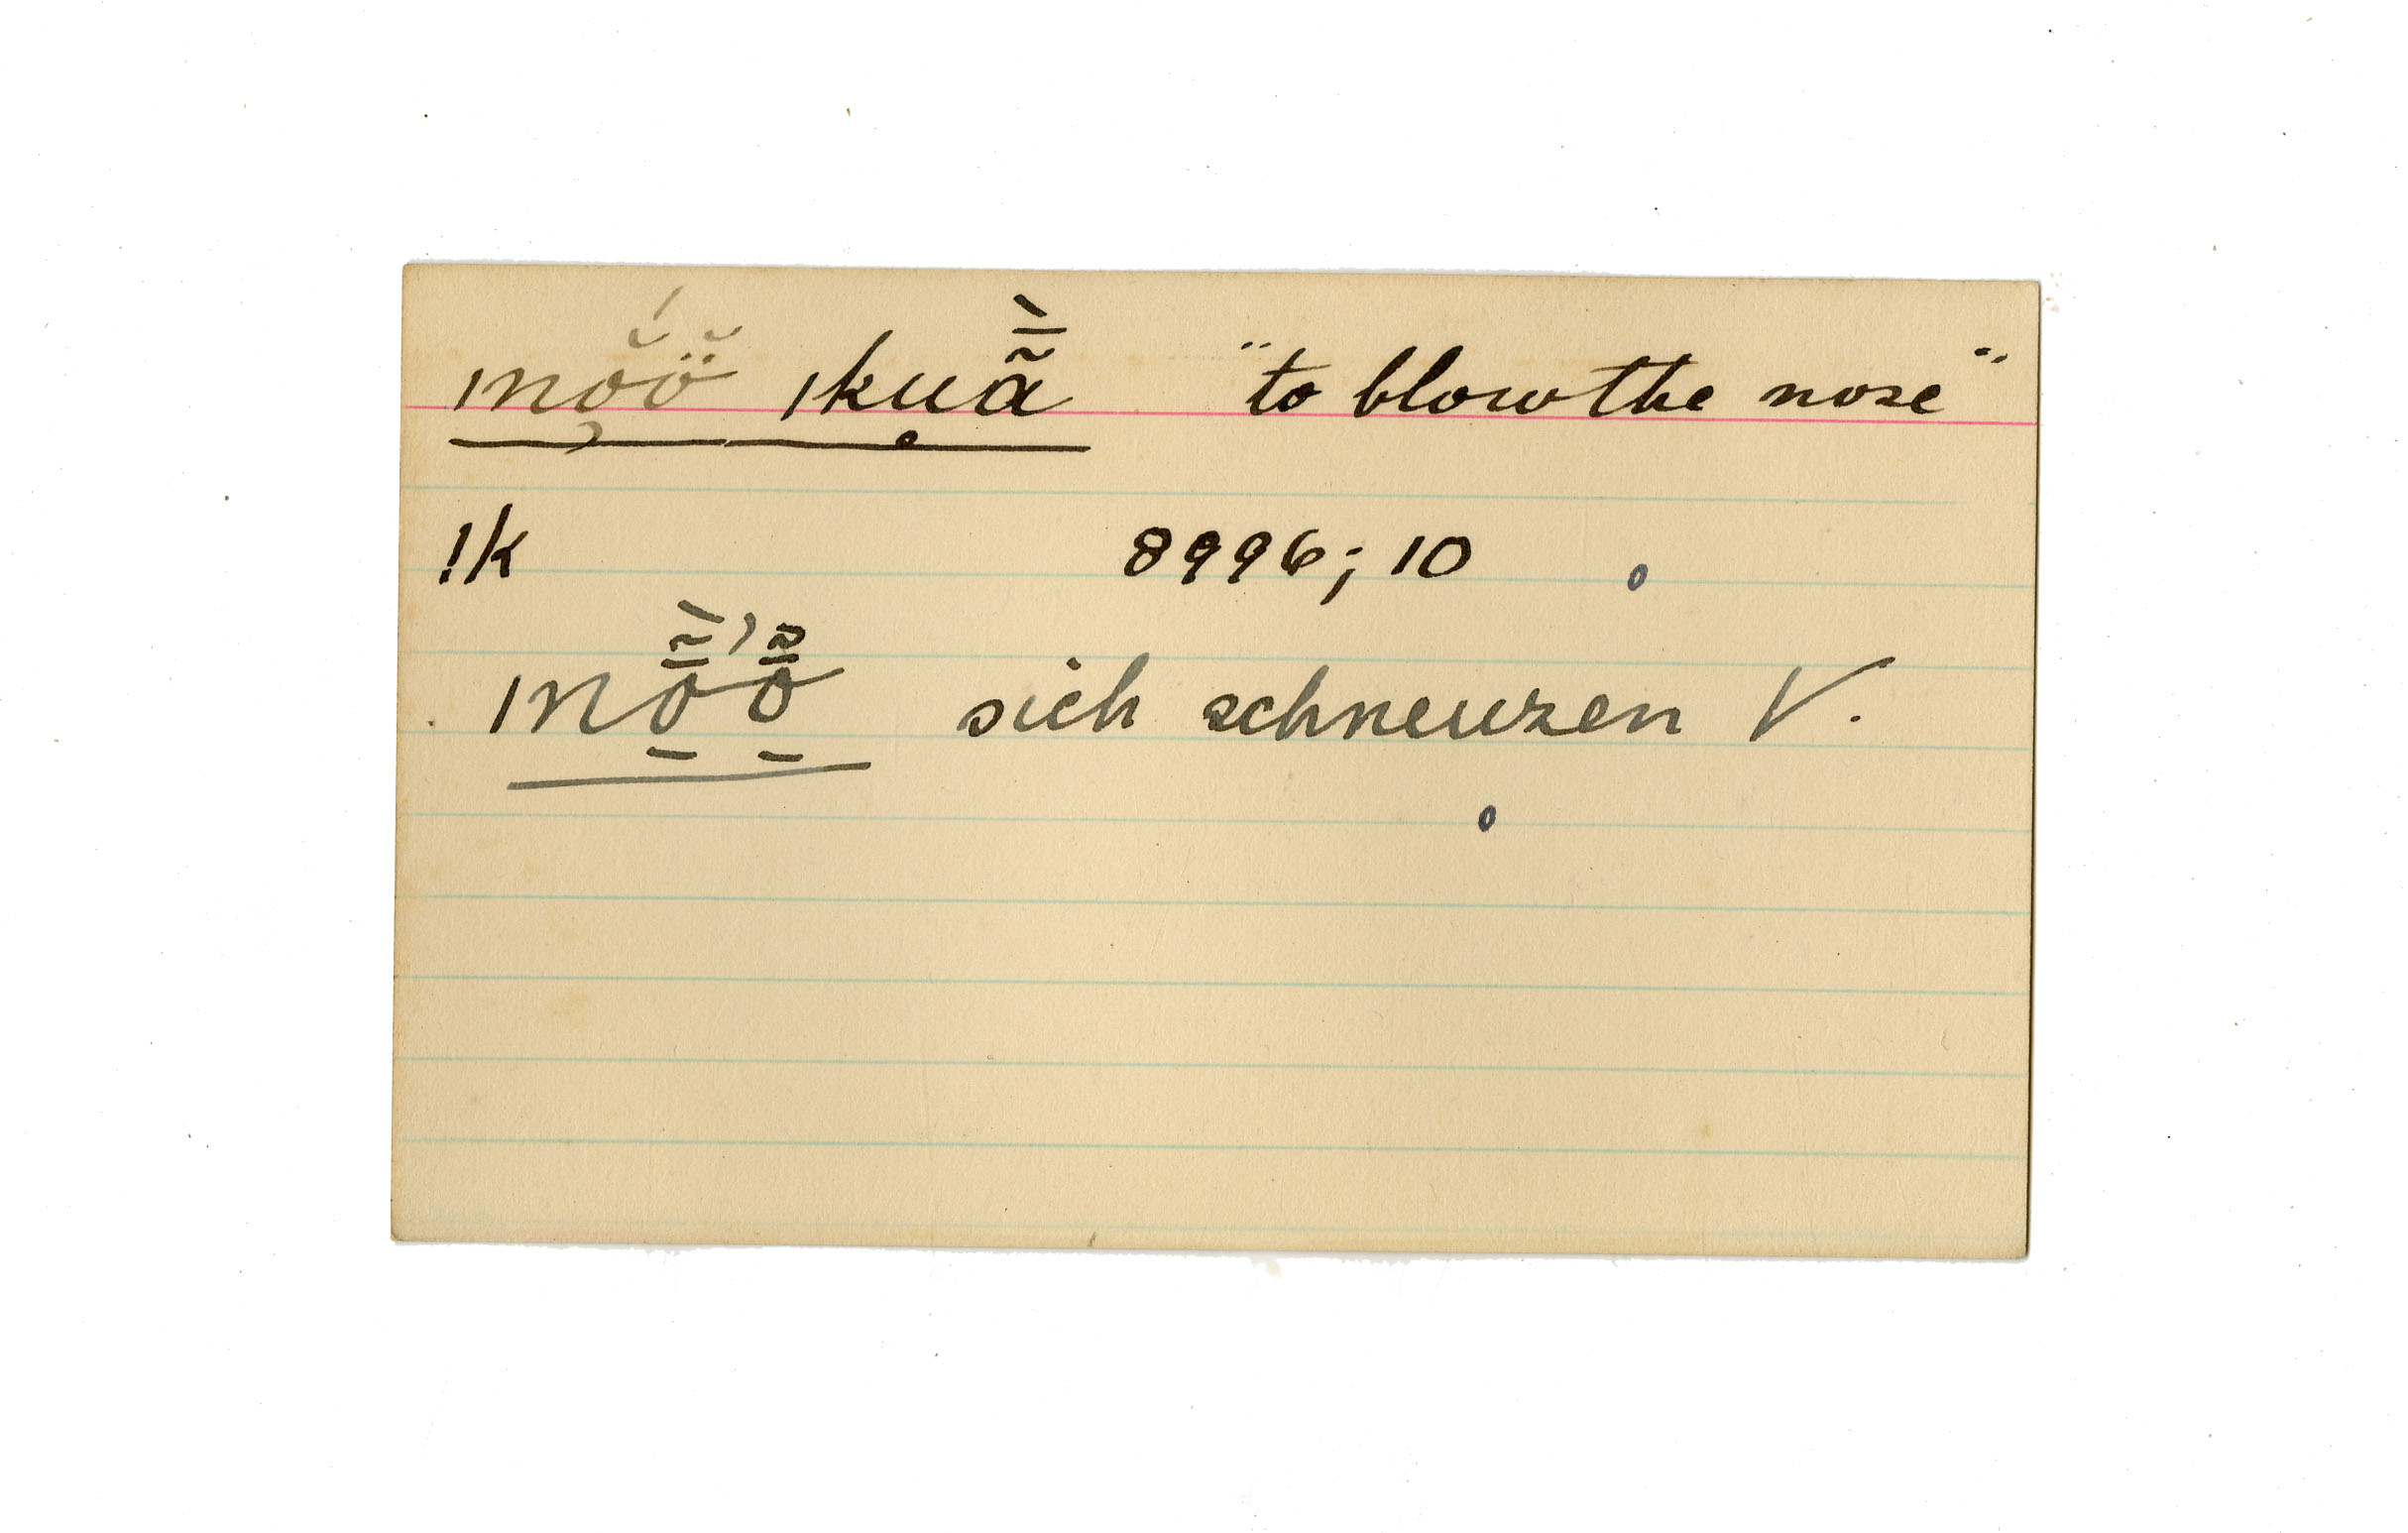 ınŏ̧̯́ö̆ ıku̥ã̄̀ "to blow the nose"
!k 8996; 10
ınō̠̃̀'ō̠̃ sich schneuzen V.